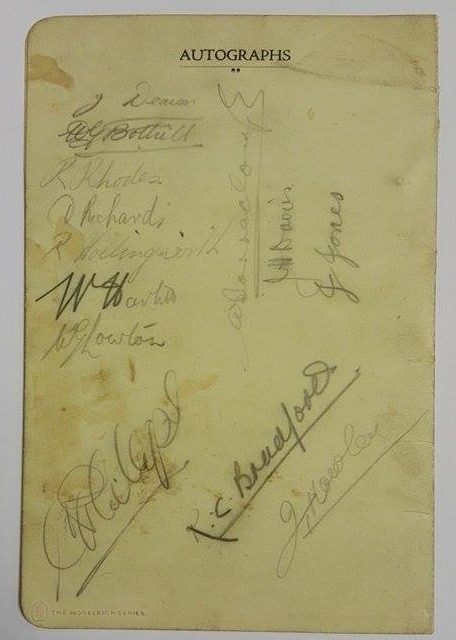 AUTOGRAPHS
J Deacon
WG Bothill
R Rhodes
D Richards
R Hollingworth
W H
WG Lowton
H Davis
G Jones
Phillips
R. C. Bradford
J Rowley
THE MORELEIGH SERIES.